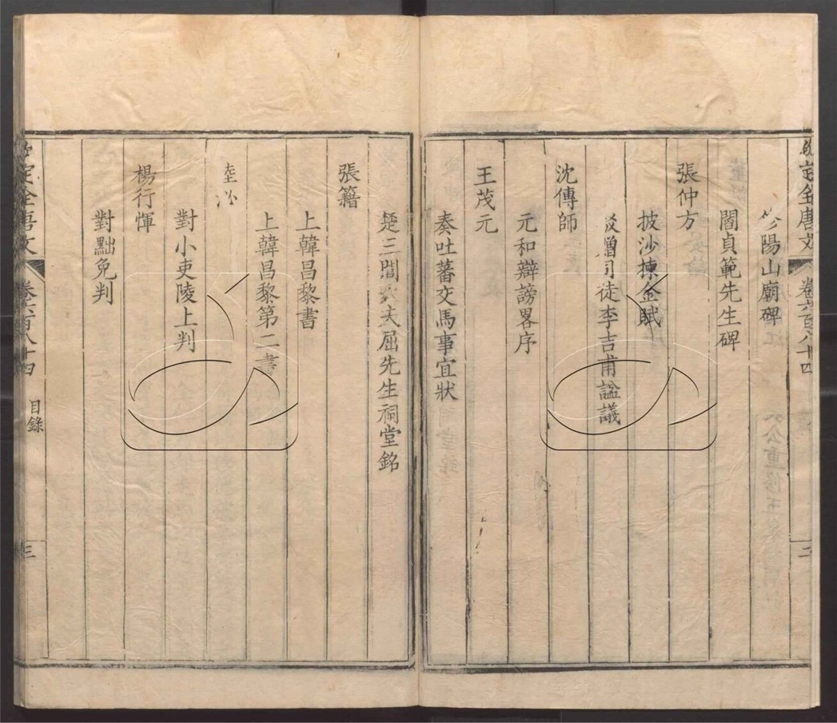 定全唐文 卷六百八十四 二
陽山廟碑
閻貞範先生碑
張仲方
披沙揀金賦
駮贈司徒李吉甫謚議
沈傳師
元和辯謗畧序
王茂元
奏吐蕃交馬事宜狀
楚三閭大夫屈先生祠堂銘
張籍
上韓昌黎書
上韓昌黎第二書
陸
對小吏陵上判
楊行惲
對黜免判
定全唐文 卷六百八十四 目錄 三